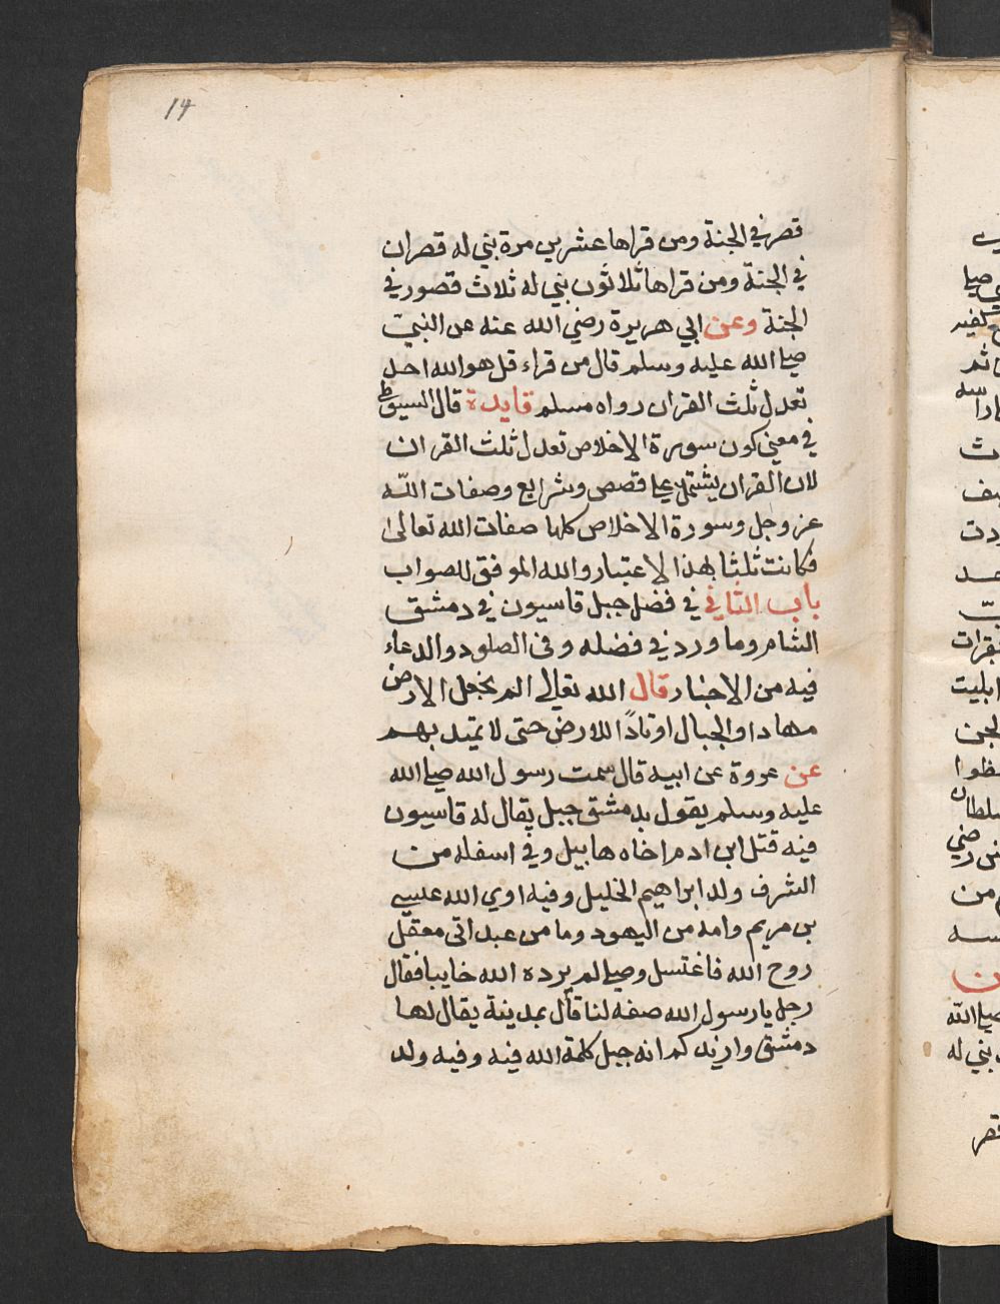 14
قصر في الجنة ومن قراها عشرين مرة بني له قصران
في الجنة ومن قراها ثلاثون بني له ثلاث قصور في
الجنة وعن ابي هريرة رضي الله عنه عن النبي
صلى الله عليه وسلم قال من قراء قل هو الله احد
تعدل ثلث القران رواه مسلم فايدة قال السيوطي
في معنى كون سورة الاخلاص تعدل ثلث القران
لان القران يشتمل على قصص وشرايع وصفات الله
عز وجل وسورة الاخلاص كلها صفات الله تعالى
فكانت ثلثا بهذا لاعتبار والله الموفق للصواب
باب الثاني في فضل جبل قاسيون في دمشق
الشام وما ورد في فضله وفى الصلوه والدعاء
فيه من الاخبار قال الله تعالى الم نجعل الارض
مهادا والجبال اوتادًا للارض حتى لا تميد بهم
عن عروة عن ابيه قال سمت رسول الله صلى الله
عليه وسلم يقول بدمشق جبل يقال له قاسيون
فيه قتل ابن ادم اخاه هابيل وفي اسفله من
الشرف ولد ابراهيم الخليل وفيه اوي الله عيسي
بن مريم وامه من اليهود وما من عبد اتى معقل
روح الله فاغتسل وصلى لم يرده الله خايبا فقال
رجل يا رسول الله صفه لنا قال بمدينة يقال لها
دمشق وازيدكم انه جبل كلمة الله فيه وفيه ولد